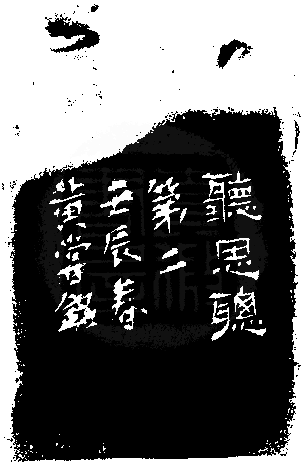 聽思聰
第二
壬辰春
黃嘗銘